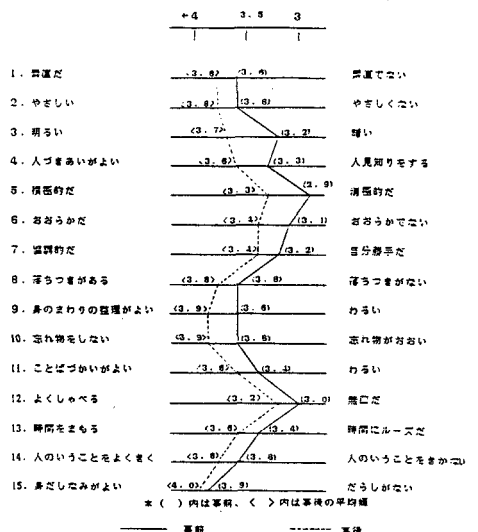 ←4 3.5 3
1. 素直だ <3.8> (3.6) 素直でない
2. やさしい <3.8> (3.6) やさしくない
3. 明るい <3.7> (3.2) 暗い
4. 人づきあいがよい <3.6> (3.3) 人見知りをする
5. 積極的だ <3.3> (2.9) 消極的だ
6. おおらかだ <3.4> (3.1) おおらかでない
7. 協調的だ <3.4> (3.2) 自分勝手だ
8. 落ちつきがある <3.8> (3.6) 落ちつきがない
9. 身のまわりの整理がよい <3.9> (3.6) わるい
10. 忘れ物をしない <3.9> (3.6) 忘れ物がおおい
11. ことばづかいがよい <3.6> (3.4) わるい
12. よくしゃべる <3.2> (3.0) 無口だ
13. 時間をまもる <3.6> (3.4) 時間にルーズだ
14. 人のいうことをよくきく <3.8> (3.6) 人のいうことをきかない
15. 身だしなみがよい <4.0> (3.9) だらしがない
* ( ) 内は事前、< > 内は事後の平均値
事前 事後